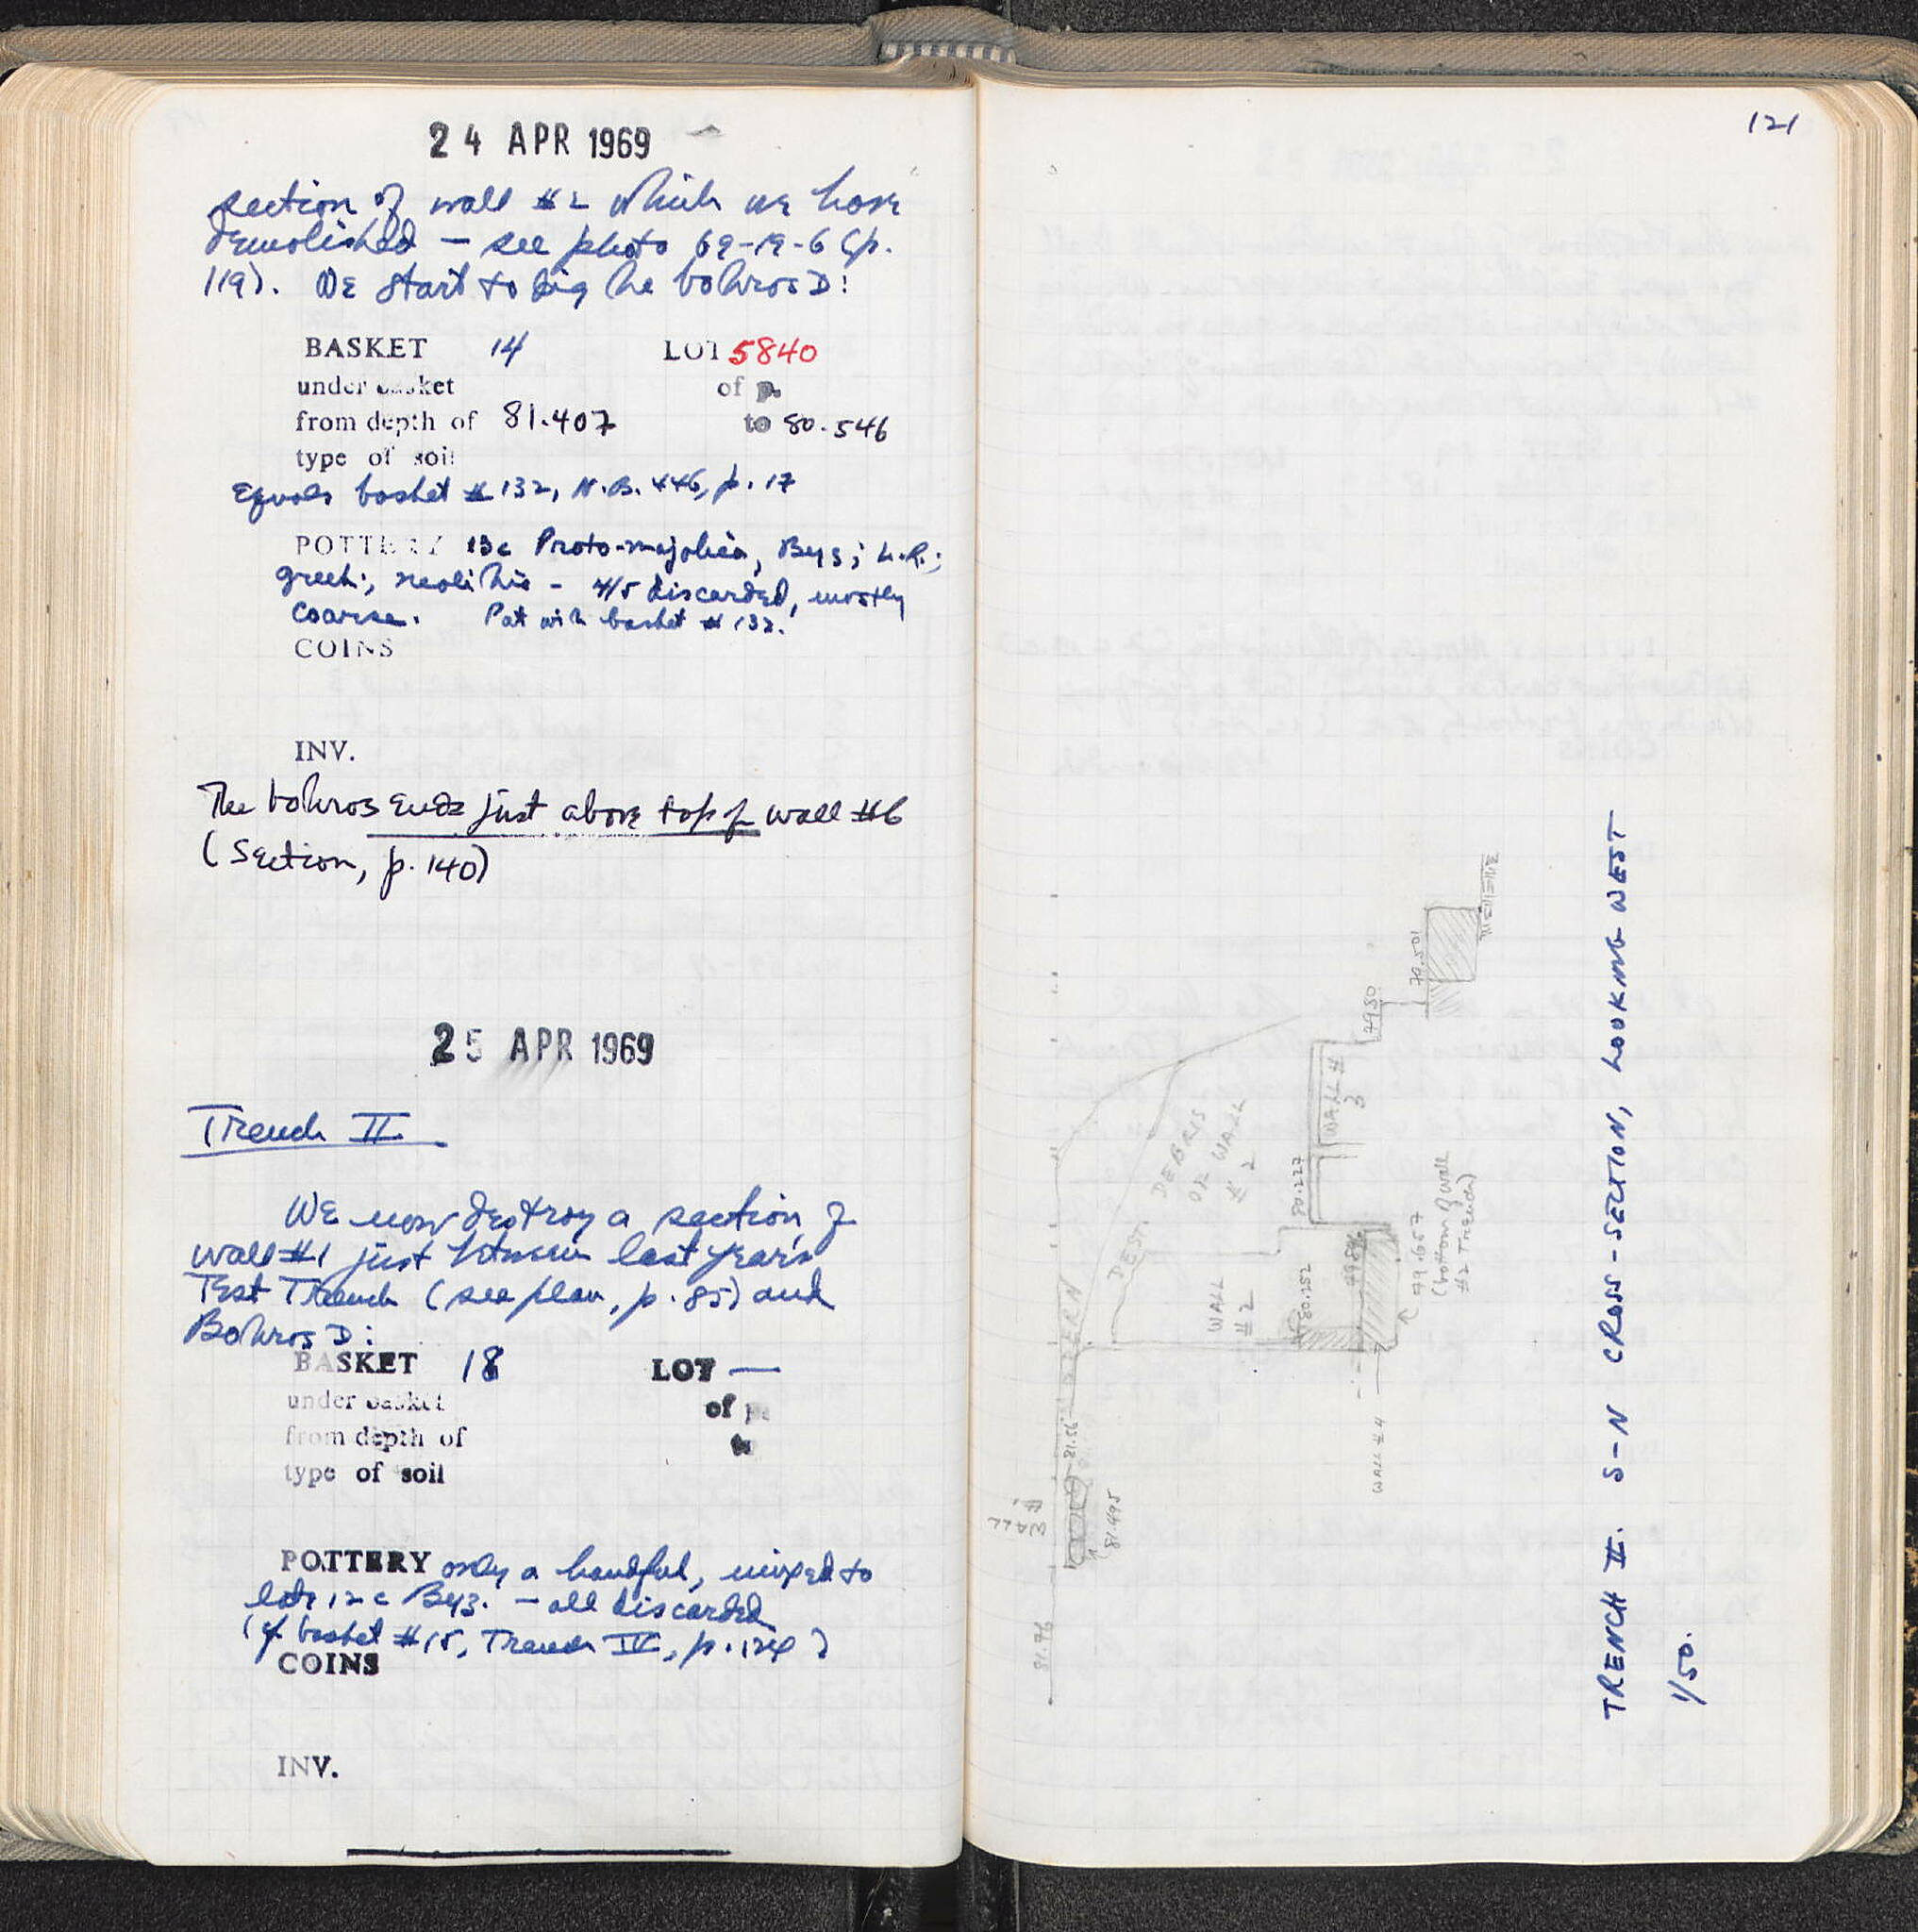 24 APR 1969
section of wall #2 which we have
demolished – see photo 69-19-6 (p.
119). We start to dig the bothros D:
BASKET 14 LOT 5840
under basket of p.
from depth of 81.407 to 80.546
type of soil
Equals basket #132, N.B. 446, p. 17
POTTERY 13c Proto-majolica, Byz; L.R.;
Greek; neolithic – 4/5 discarded, mostly
coarse. Put with basket #132.
COINS
INV.
The bothros ends just above top of wall #6
(Section, p. 140)
25 APR 1969
Trench II
We now destroy a section of
wall #1 just between last year's
Test Trench (see plan, p. 85) and
Bothros D:
BASKET 18 LOT —
under basket of p.
from depth of to
type of soil
POTTERY only a handful, mixed to
late 12c Byz. – all discarded
(cf basket #15, Trench IV, p. 124)
COINS
INV.
121
TRENCH II. S-N CROSS-SECTION, LOOKING WEST
1/50.
79.501
79.80
WALL #
3
DEBRIS
OF WALL
# 2
80.227
WALL
# 2
80.252
79.657
(bottom of wall
#2 Trench)
WALL #4
81.56
81.495
WALL
#1
81.76